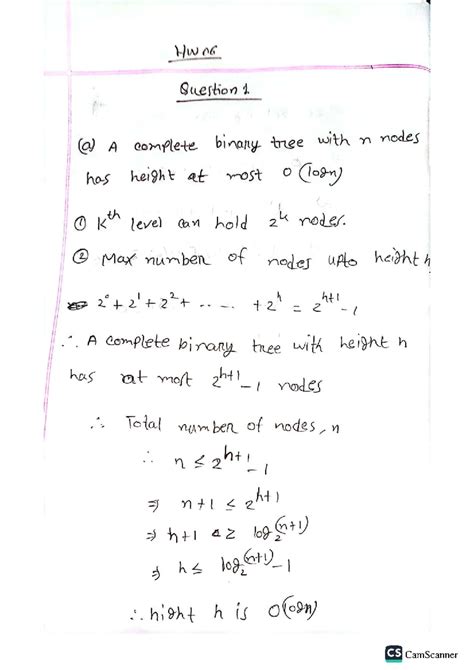 HW 06
Question 1
(a) A complete binary tree with n nodes
has height at most O(logn)
① Kth level can hold 2^k nodes.
② Max number of nodes upto height h
2^0 + 2^1 + 2^2 + ..... + 2^h = 2^h+1 - 1
∴ A complete binary tree with height h
has at most 2^h+1 - 1 nodes
∴ Total number of nodes, n
∴ n ≤ 2^h+1 - 1
⇒ n+1 ≤ 2^h+1
⇒ h+1 ≥ log2(n+1)
⇒ h ≤ log2(n+1) - 1
∴ hight h is O(logn)
CS CamScanner